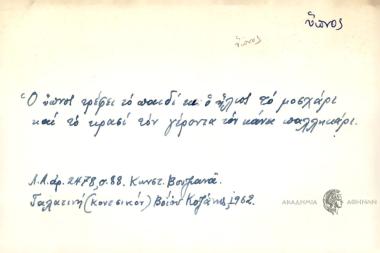 ὕπνος
ὕπνος
Ὁ ὕπνος τρέφει τὸ παιδί κι ὁ ἥλιος τὸ μοσχάρι
καί τὸ κρασί τὸν γέροντα τὸν κάνει παλληκάρι.
Λ.Α. ἀρ. 2478, σ. 88. Κωνστ.
Γαλατινή (Κονσικόν) Βοΐου Κοζάνης, 1962.
ΑΚΑΔΗΜΙΑ ΑΘΗΝΩΝ